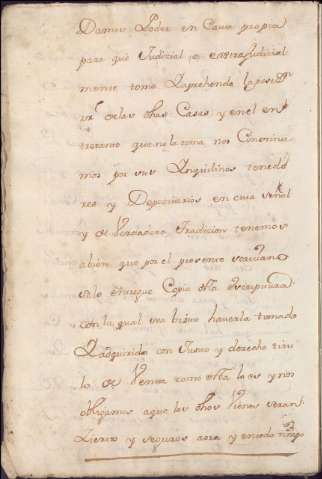 Damos Poder en Causa propia
para que Judicial o extrajudicial
mente tome Laprehenda la poss.on
R.l de las dhas Casas y en el en
tretanto que no la toma nos Constitui
mos por sus Ynquilinos tenedo
res y Depocitarios en cuia señal
y de Verdadera Tradicion tenemos
abien, que por el presente escriuano
se le entregue Copia desta escriptura
con la qual sea bisto hauerla tomado
Ladquirido con Justo y derecho titu
lo de Venta como esta lo es y nos
obligamos aque los dhos Vienes seran
Ziertos y seguros aora y en todo tiempo